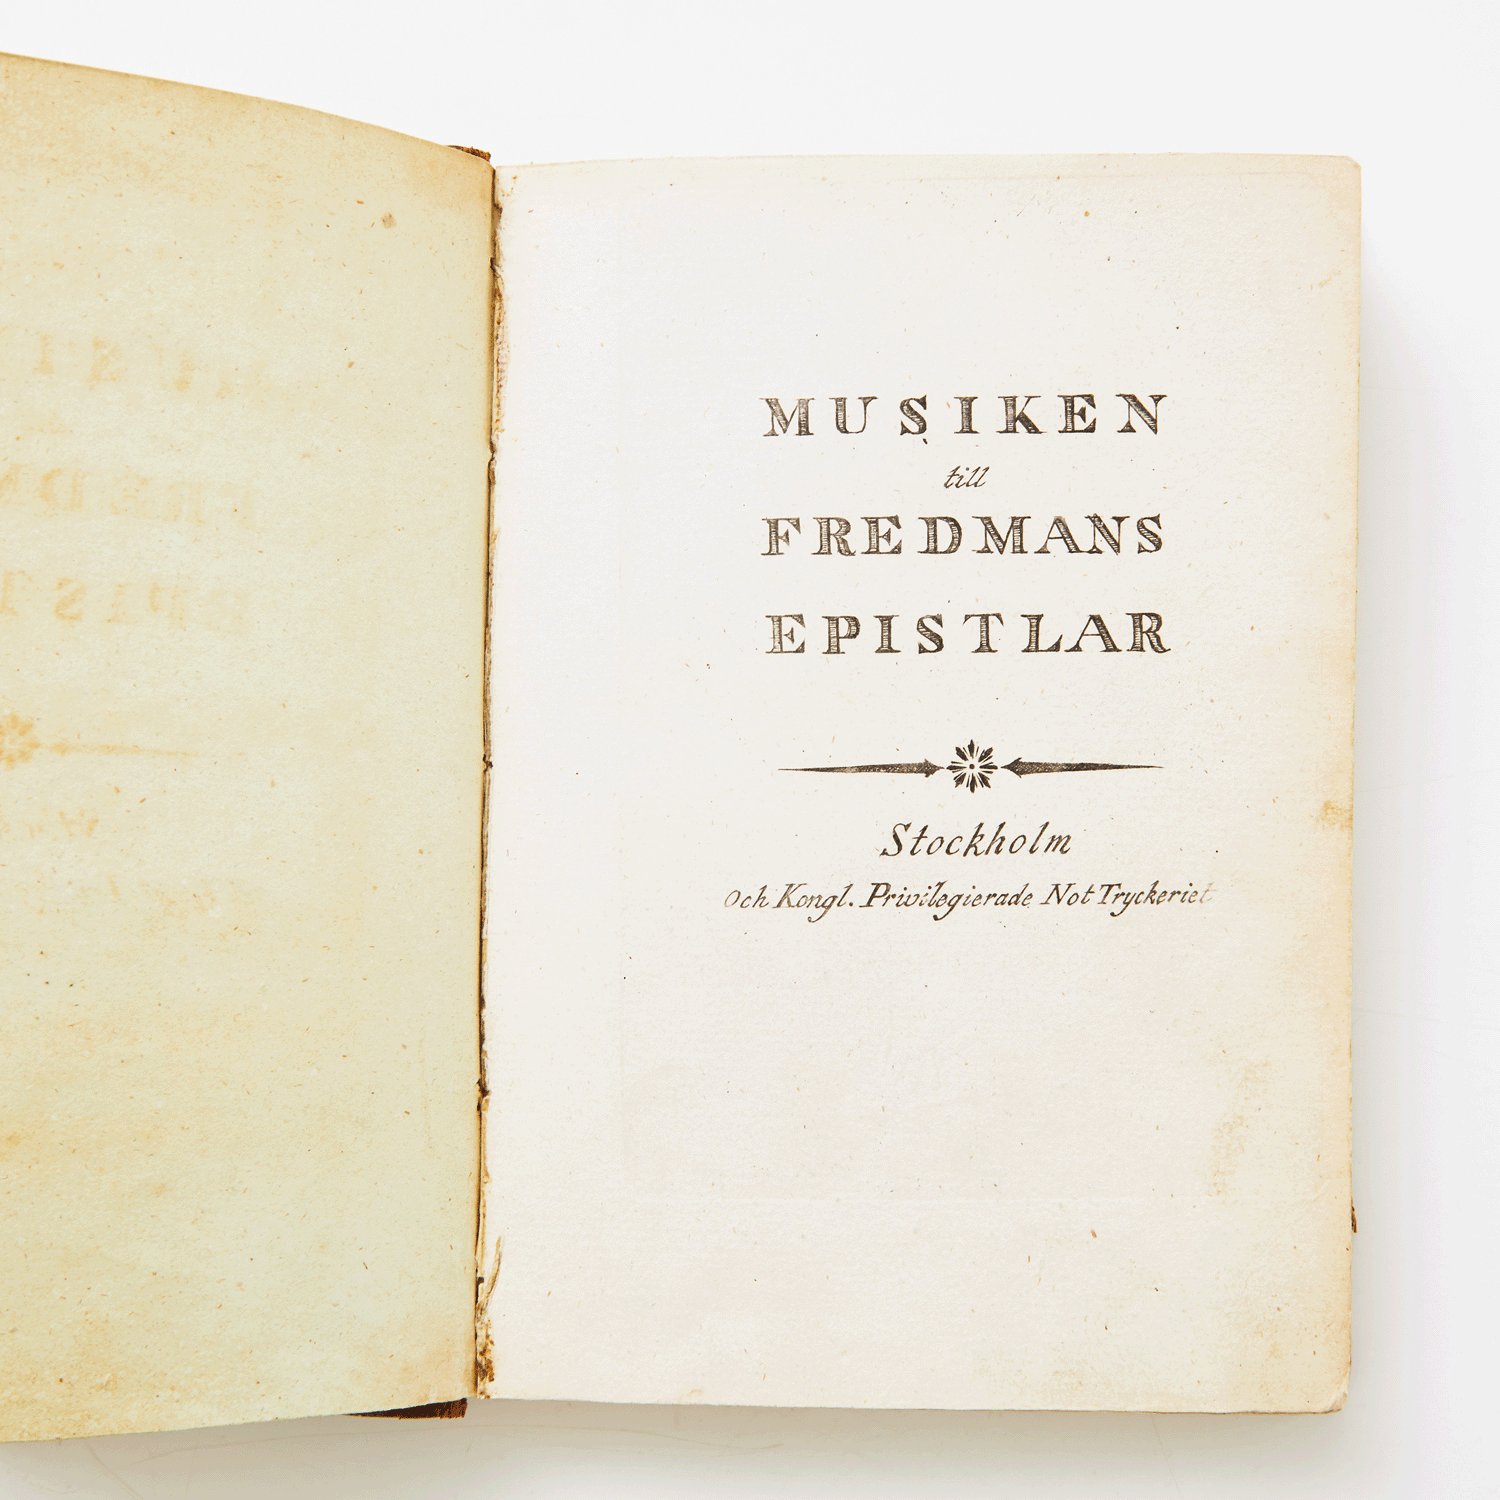 MUSIKEN
till
FREDMANS
EPISTLAR
Stockholm
och Kongl. Privilegierade Not Tryckeriet